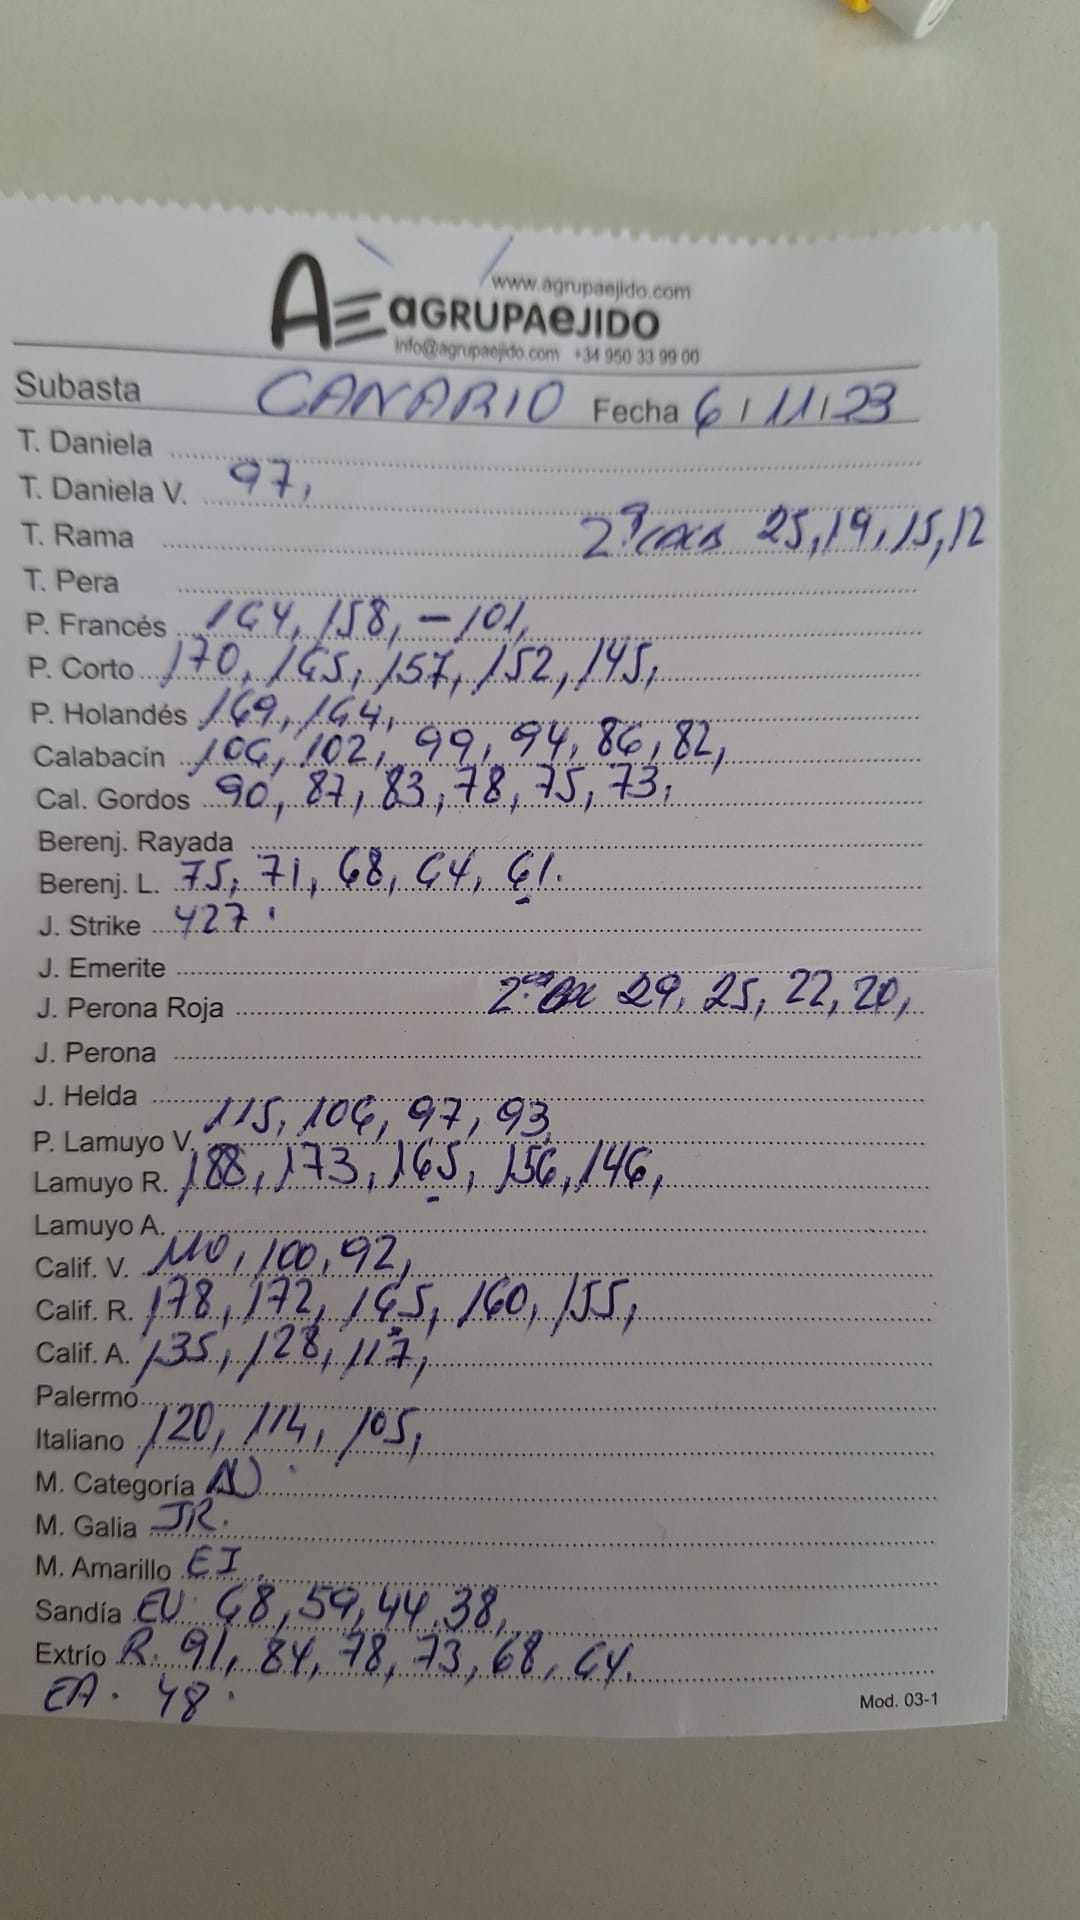 www.agrupaejido.com
AE aGRUPAeJIDO
info@agrupaejido.com +34 950 33 99 00
Subasta CANARIO Fecha 6/11/23
T. Daniela
T. Daniela V. 97,
T. Rama 2ª 25, 19, 15, 12
T. Pera
P. Francés 164, 158, - 101,
P. Corto 170, 165, 157, 152, 145,
P. Holandés 169, 164,
Calabacín 106, 102, 99, 94, 86, 82,
Cal. Gordos 90, 87, 83, 78, 75, 73,
Berenj. Rayada
Berenj. L. 75, 71, 68, 64, 61.
J. Strike 427.
J. Emerite
J. Perona Roja 2ª 29, 25, 22, 20,
J. Perona
J. Helda
P. Lamuyo V. 115, 106, 97, 93
Lamuyo R. 188, 173, 165, 156, 146,
Lamuyo A.
Calif. V. 110, 100, 92,
Calif. R. 178, 172, 165, 160, 155,
Calif. A. 135, 128, 117,
Palermo
Italiano 120, 114, 105,
M. Categoría
M. Galia JR.
M. Amarillo EI.
Sandía EV 68, 59, 44, 38,
Extrío R. 91, 84, 78, 73, 68, 64.
EA. 48.
Mod. 03-1